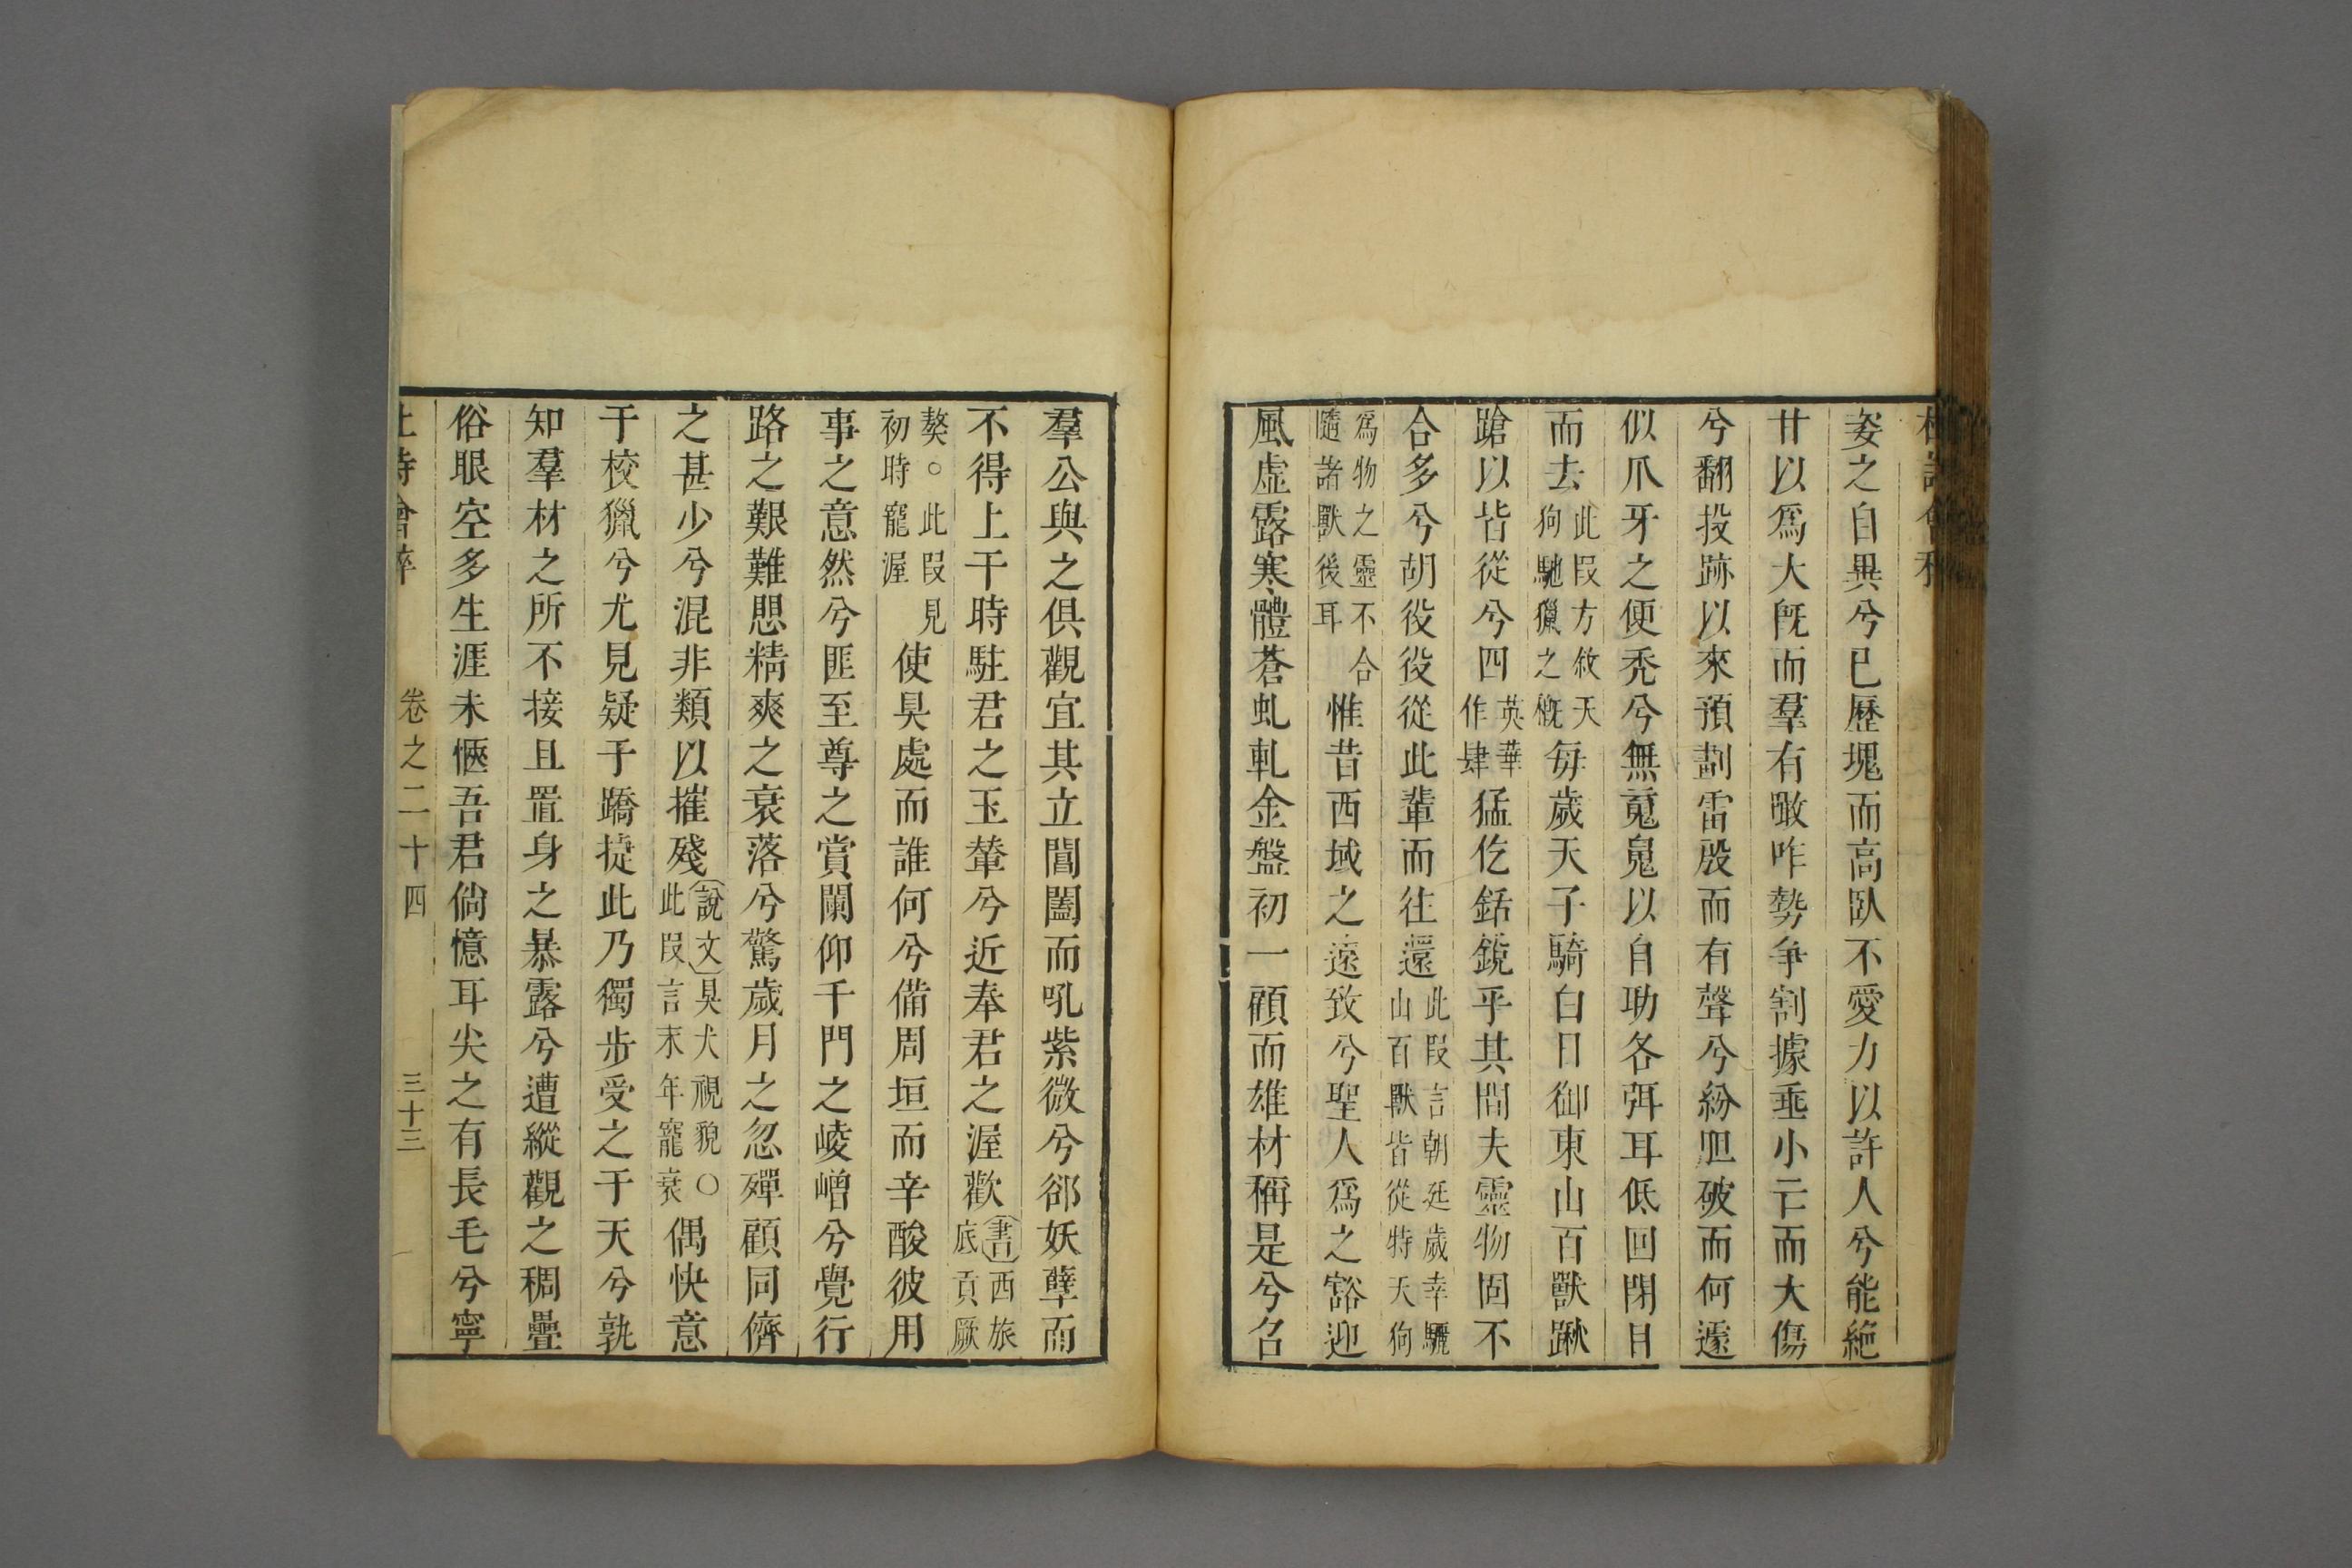 杜詩會稡
姿之自異兮已歷塊而高臥不愛力以許人兮能絕
甘以爲大旣而羣有噉咋勢爭割據垂小亡而大傷
兮翻投跡以來預劃雷殷而有聲兮紛胆破而何遽
似爪牙之便秃兮無䰟鬼以自助各弭耳低回閉目
而去此段方敘天狗馳獵之槪每歲天子騎白日御東山百獸蹴
蹌以皆從兮四英華作肆猛仡銛鋭乎其間夫靈物固不
合多兮胡役役從此輩而往還此段言朝廷歲幸驪山百獸皆從特天狗
爲物之靈不合隨諸獸後耳惟昔西域之遠致兮聖人爲之豁迎
風虛露寒體蒼虬軋金盤初一顧而雄材稱是兮召
羣公與之俱觀宜其立閶闔而吼紫微兮郤妖孽而
不得上干時駐君之玉輦兮近奉君之渥歡書西旅底貢厥
獒。此段見初時寵渥使狊處而誰何兮備周垣而辛酸彼用
事之意然兮匪至尊之賞闌仰千門之崚嶒兮覺行
路之艱難思精爽之衰落兮驚歲月之忽殫顧同儕
之甚少兮混非類以摧殘說文狊犬視貌○此段言末年寵衰偶快意
于校獵兮尤見疑于蹻捷此乃獨步受之于天兮孰
知羣材之所不接且置身之暴露兮遭縱觀之稠疊
俗眼空多生涯未愜吾君倘憶耳尖之有長毛兮寧
杜詩會稡 卷之二十四 三十三